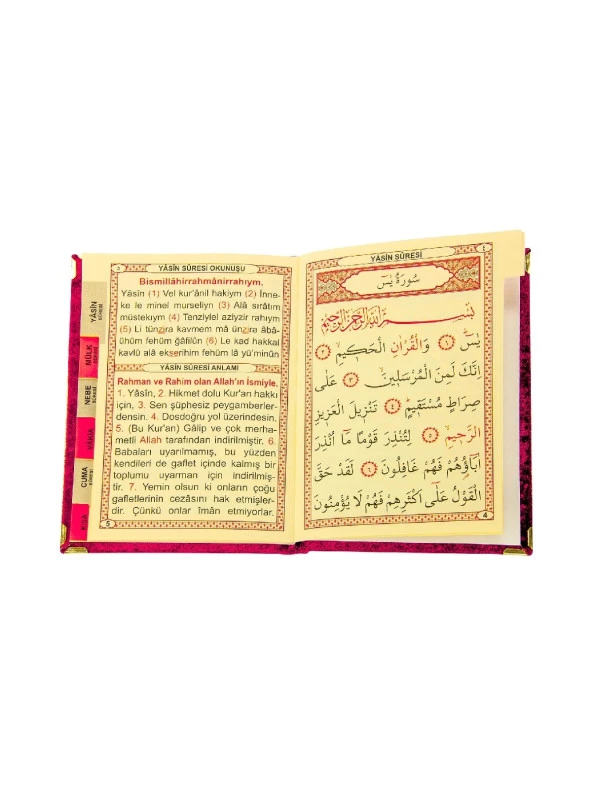 ٥
YÂSİN SÛRESİ OKUNUŞU
Bismillâhirrahmânirrahıym.
Yâsîn (1) Vel kur'ânil hakiym (2) İnne-
ke le minel murseliyn (3) Alâ sırâtım
müstekıym (4) Tenziylel aziyzir rahıym
(5) Li tünzira kavmem mâ ünzira âbâ-
ühüm fehüm ğâfilûn (6) Le kad hakkal
kavlü alâ ekserihim fehüm lâ yü'minûn
YÂSİN SÛRESİ ANLAMI
Rahman ve Rahim olan Allah'ın İsmiyle.
1. Yâsîn, 2. Hikmet dolu Kur'an hakkı
için, 3. Sen şüphesiz peygamberler-
densin. 4. Dosdoğru yol üzerindesin.
5. (Bu Kur'an) Gâlip ve çok merha-
metli Allah tarafından indirilmiştir. 6.
Babaları uyarılmamış, bu yüzden
kendileri de gaflet içinde kalmış bir
toplumu uyarman için indirilmiş-
tir. 7. Yemin olsun ki onların çoğu
gafletlerinin cezasını hak etmişler-
dir. Çünkü onlar îmân etmiyorlar.
5
YÂSİN
SÛRESİ
MÜLK
NEBE
SÛRESİ
VAKIA
CUMA
SÛRESİ
YÂSİN SÛRESİ
٤
سُورَةُ يٰسٓ
بِسْمِ اللّٰهِ الرَّحْمٰنِ الرَّحِيمِ
يٰسٓ ﴿١﴾ وَالْقُرْاٰنِ الْحَكِيمِ ﴿٢﴾
اِنَّكَ لَمِنَ الْمُرْسَلِينَ ﴿٣﴾ عَلٰى
صِرَاطٍ مُسْتَقِيمٍ ﴿٤﴾ تَنْزِيلَ الْعَزِيزِ
الرَّحِيمِ ﴿٥﴾ لِتُنْذِرَ قَوْمًا مَٓا اُنْذِرَ
اٰبَٓاؤُهُمْ فَهُمْ غَافِلُونَ ﴿٦﴾ لَقَدْ حَقَّ
الْقَوْلُ عَلٰٓى اَكْثَرِهِمْ فَهُمْ لَا يُؤْمِنُونَ
4